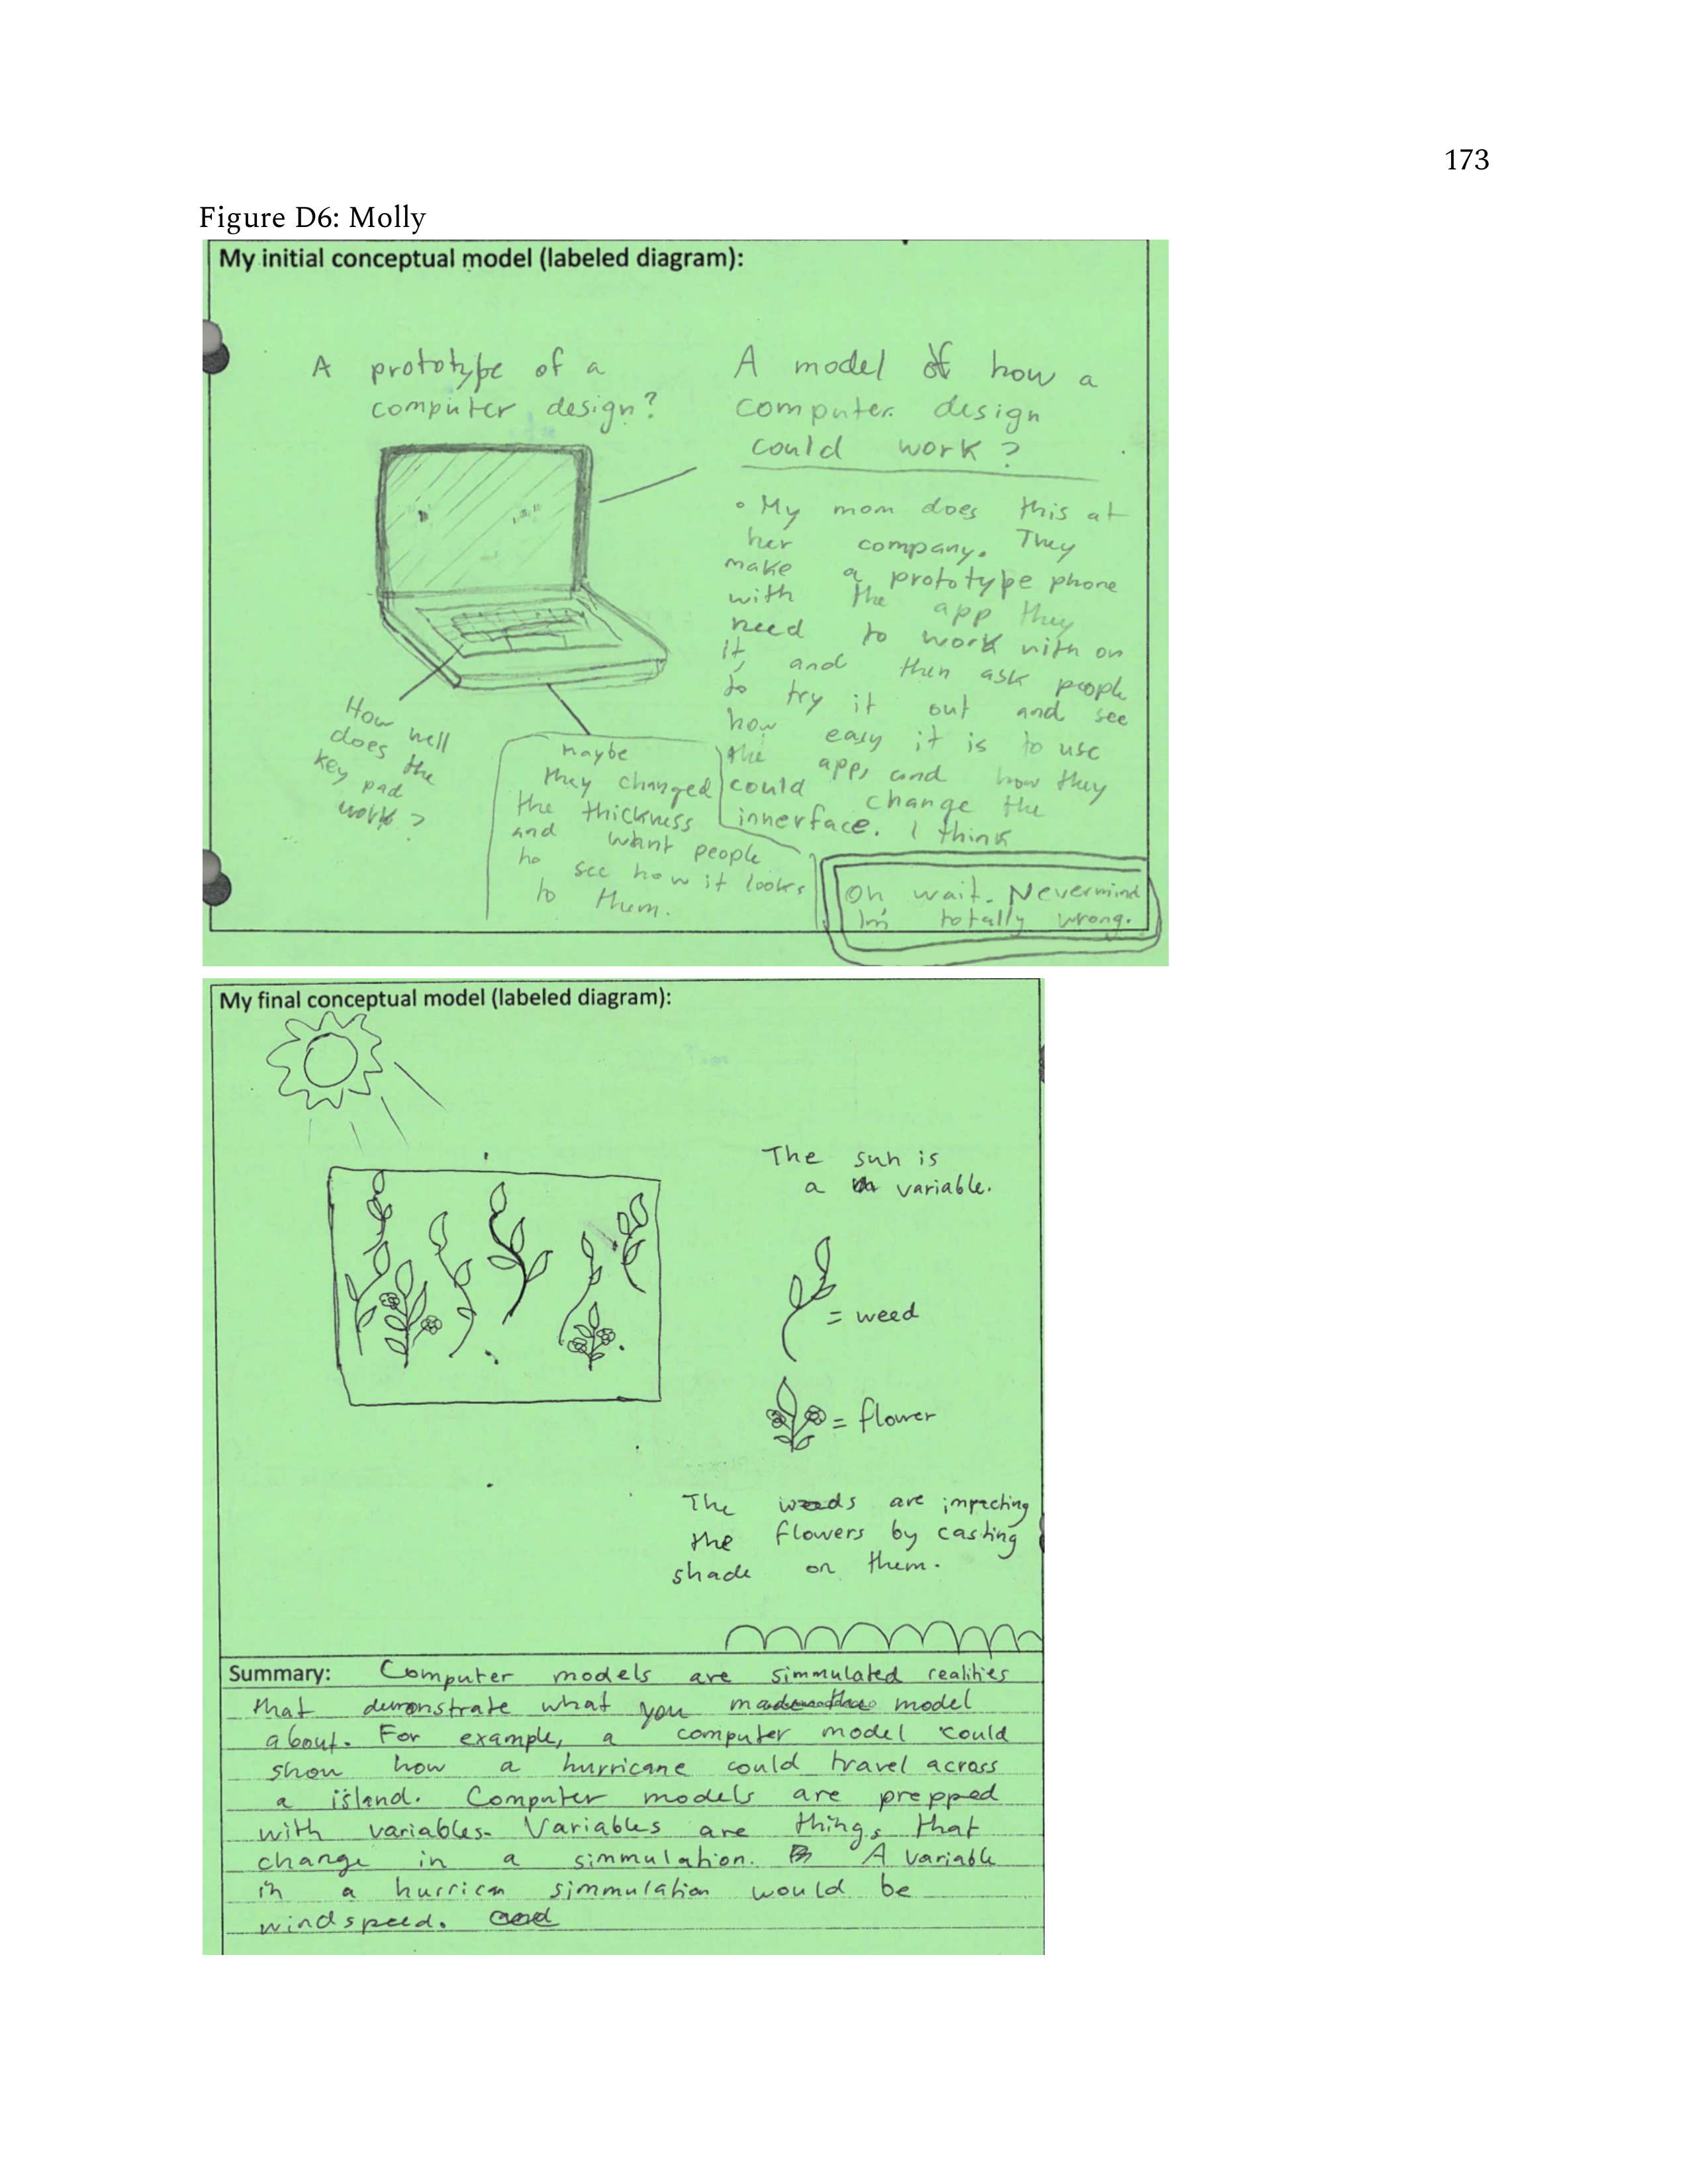 173
Figure D6: Molly
My initial conceptual model (labeled diagram):
A prototype of a
computer design?
A model of how a
computer design
could work?
• My mom does this at
her company. They
make a prototype phone
with the app they
need to work with on
it, and then ask people
to try it out and see
how easy it is to use
the app, and how they
could change the
innerface. I think
How well
does the
key pad
work?
maybe
they changed
the thickness
and want people
to see how it looks
to them.
Oh wait. Nevermind
Im totally wrong.
My final conceptual model (labeled diagram):
The sun is
a variable.
= weed
= flower
The weeds are impacting
the flowers by casting
shade on them.
Summary: Computer models are simmulated realities
that demonstrate what you model
about. For example, a computer model could
show how a hurricane could travel across
a island. Computer models are prepped
with variables. Variables are things that
change in a simmulation. A variable
in a hurrican simmulation would be
windspeed. and